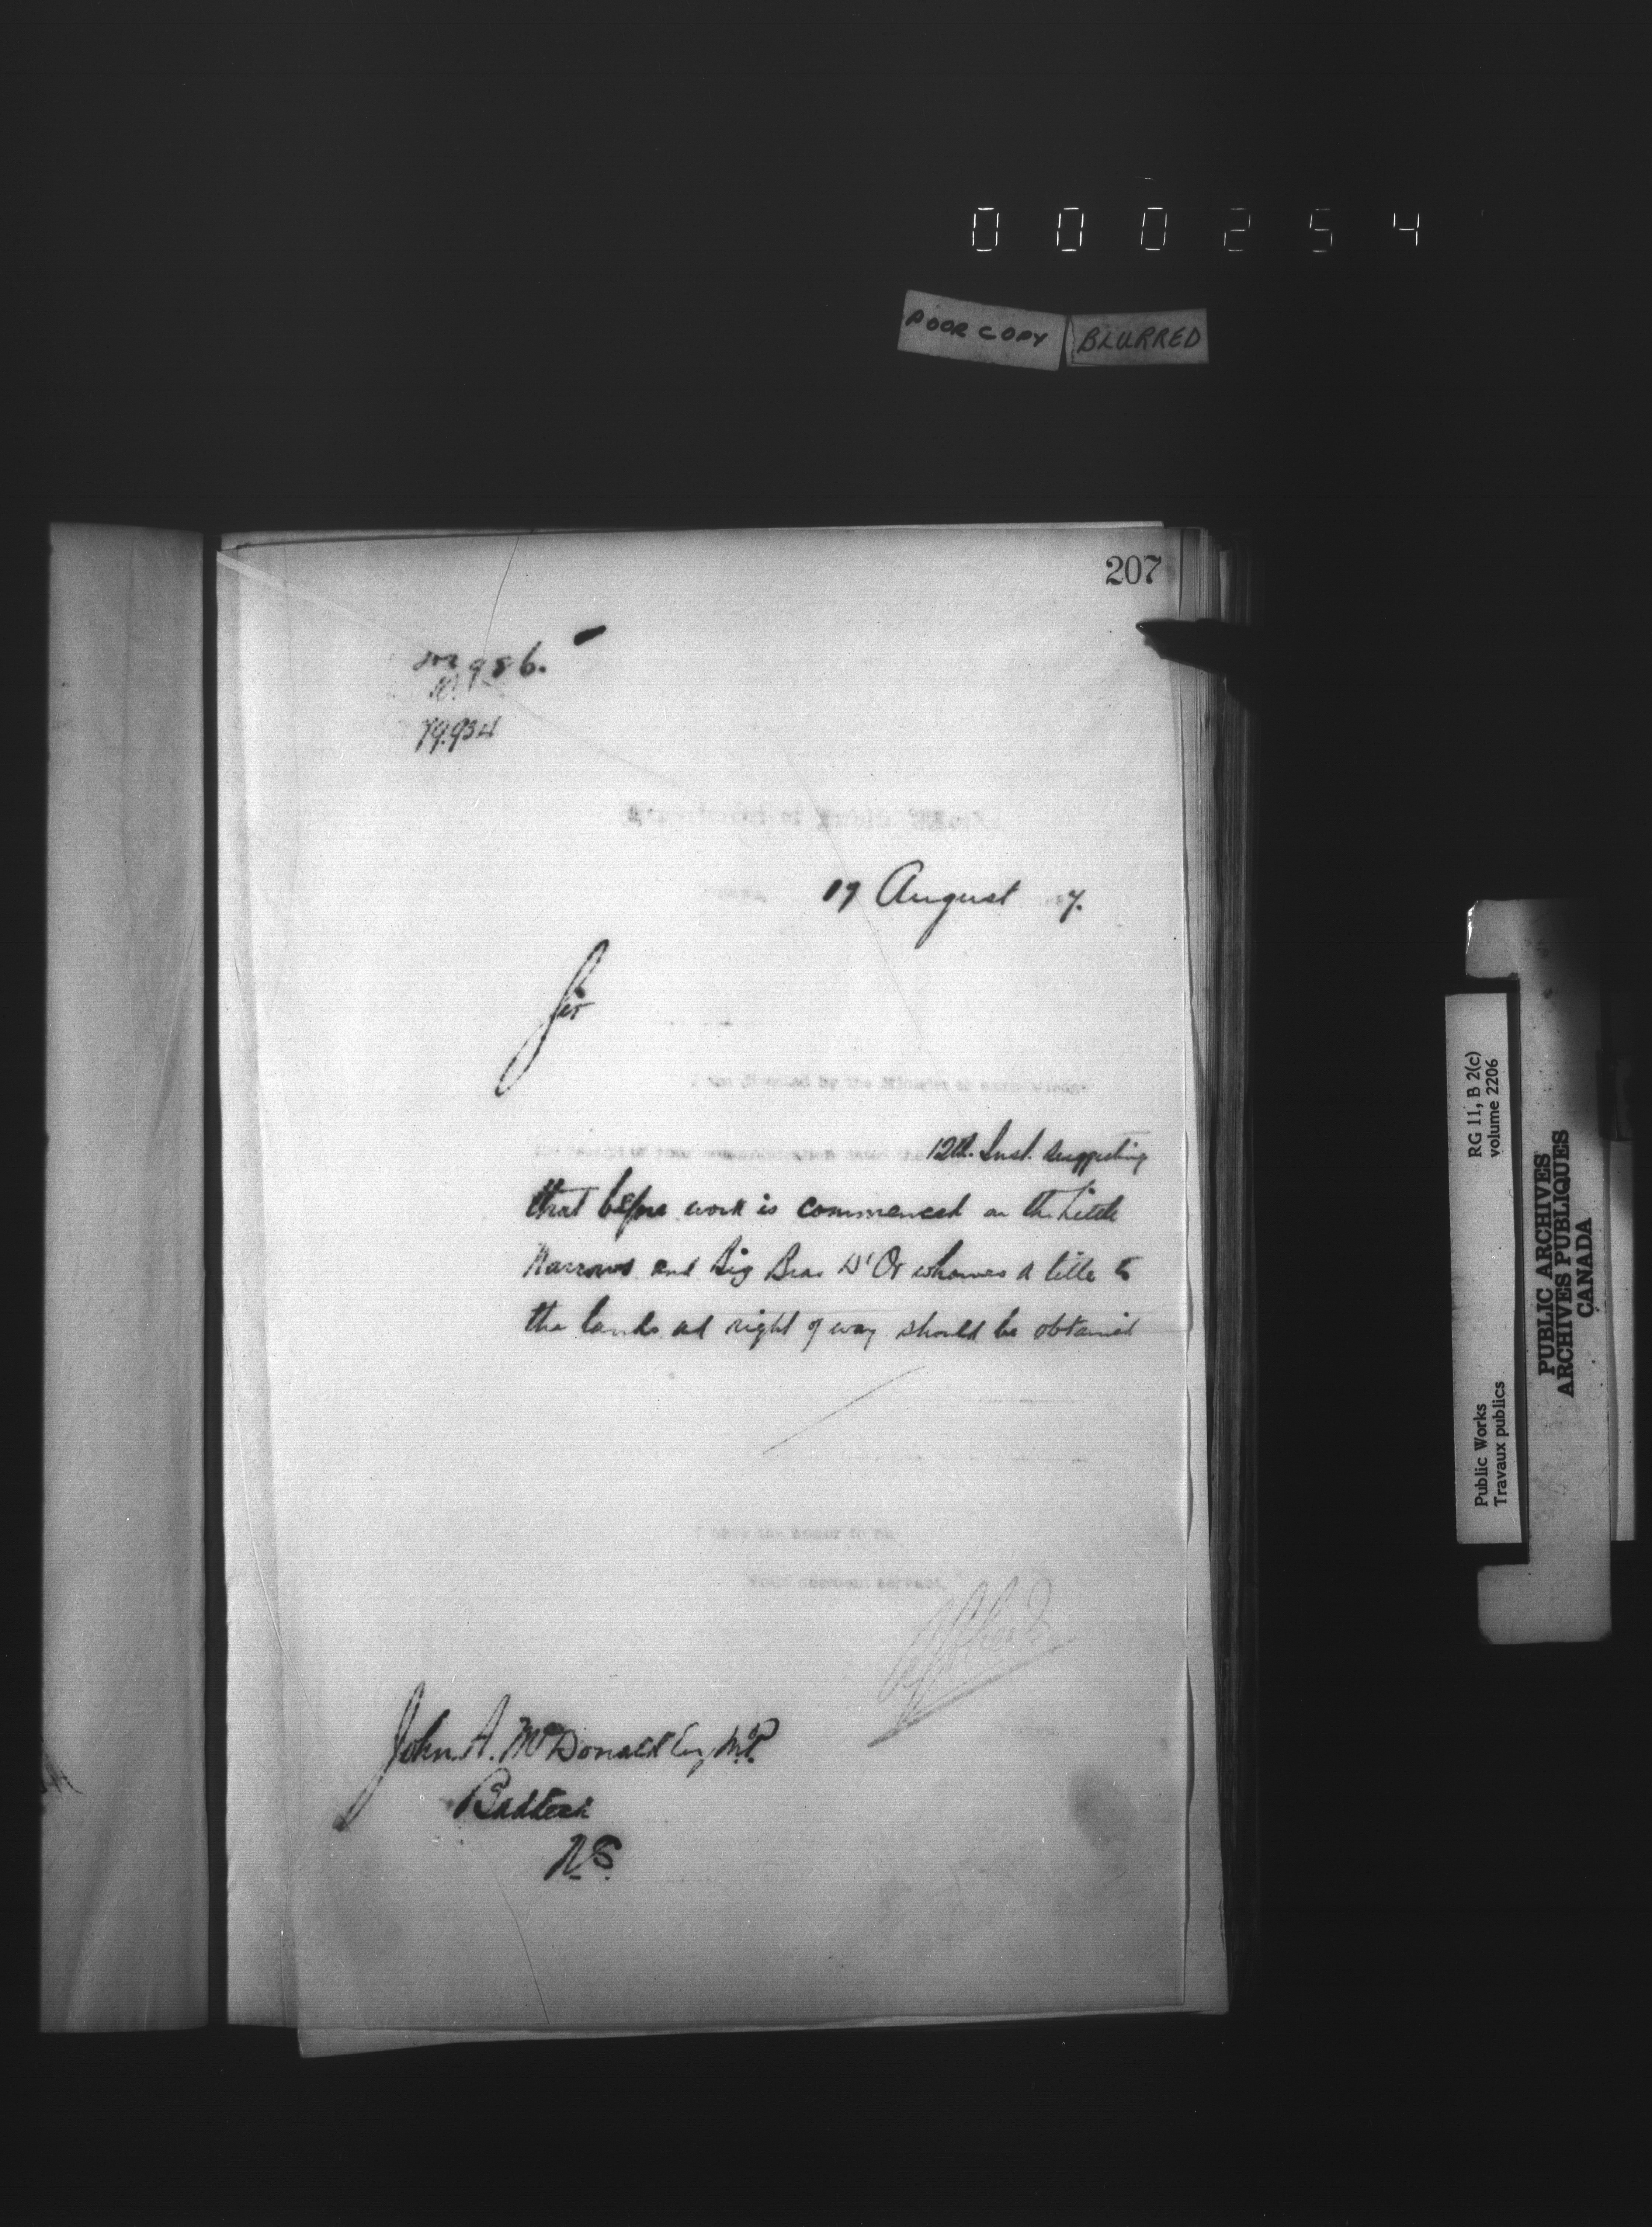 000254
POOR COPY BLURRED
207
986.
79934
Department of Public Works
17 August 7.
Sir
I am directed by the Minister to acknowledge
the receipt of your communication dated the 12th. Inst. suggesting
that before work is commenced on the Little
Narrows and Big Bras D'Or wharves a title to
the lands and right of way should be obtained
I have the honor to be
Your obedient servant,
John A. McDonald Esq M.P.
Baddeck
N.S.
RG 11, B 2(c)
volume 2206
Public Works
Travaux publics
PUBLIC ARCHIVES
ARCHIVES PUBLIQUES
CANADA